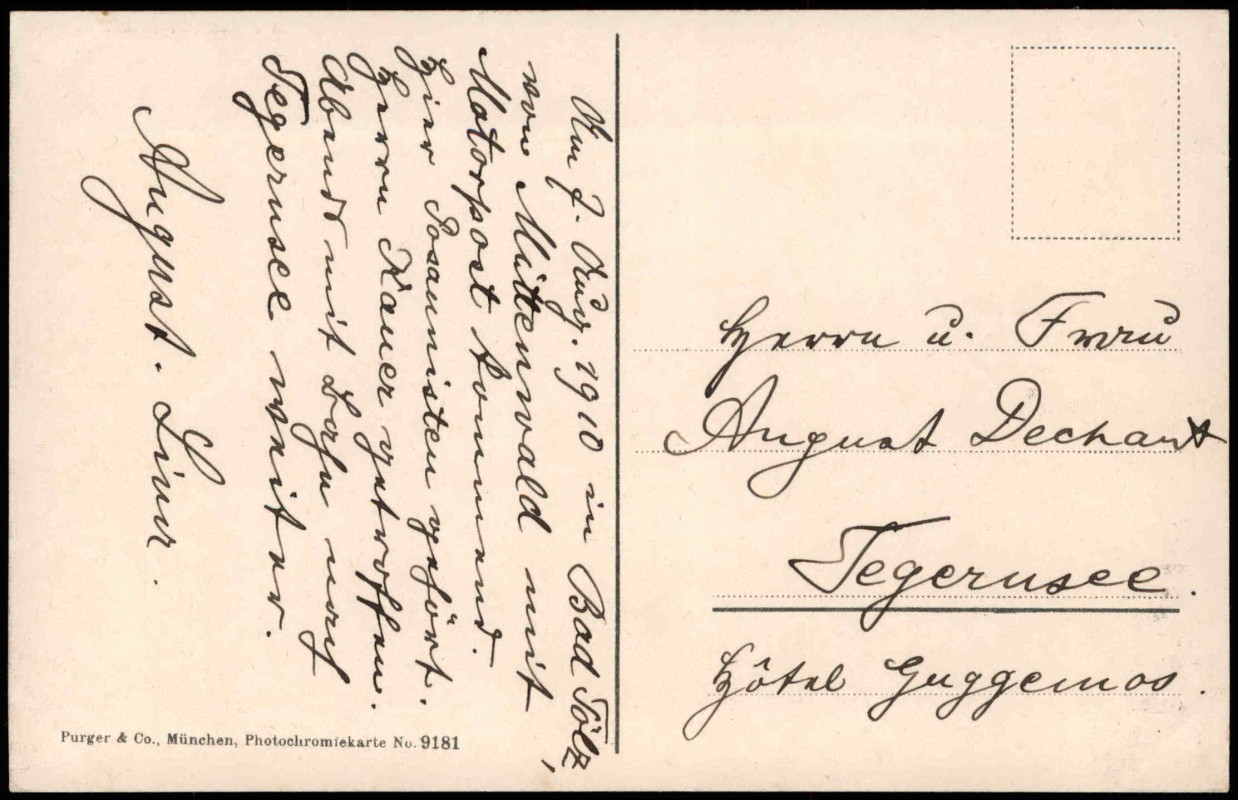 Am 7. Aug. 1910 in Bad Tölz,
von Mittenwald mit
Motorpost kommend.
Hier Posaunisten gehört.
Herrn Kauer getroffen.
Abends mit Bahn nach
Tegernsee weiter.
August. Linur.
Herrn u. Frau
August Dechant
Tegernsee.
Hôtel Guggemos.
Purger & Co., München, Photochromiekarte No. 9181